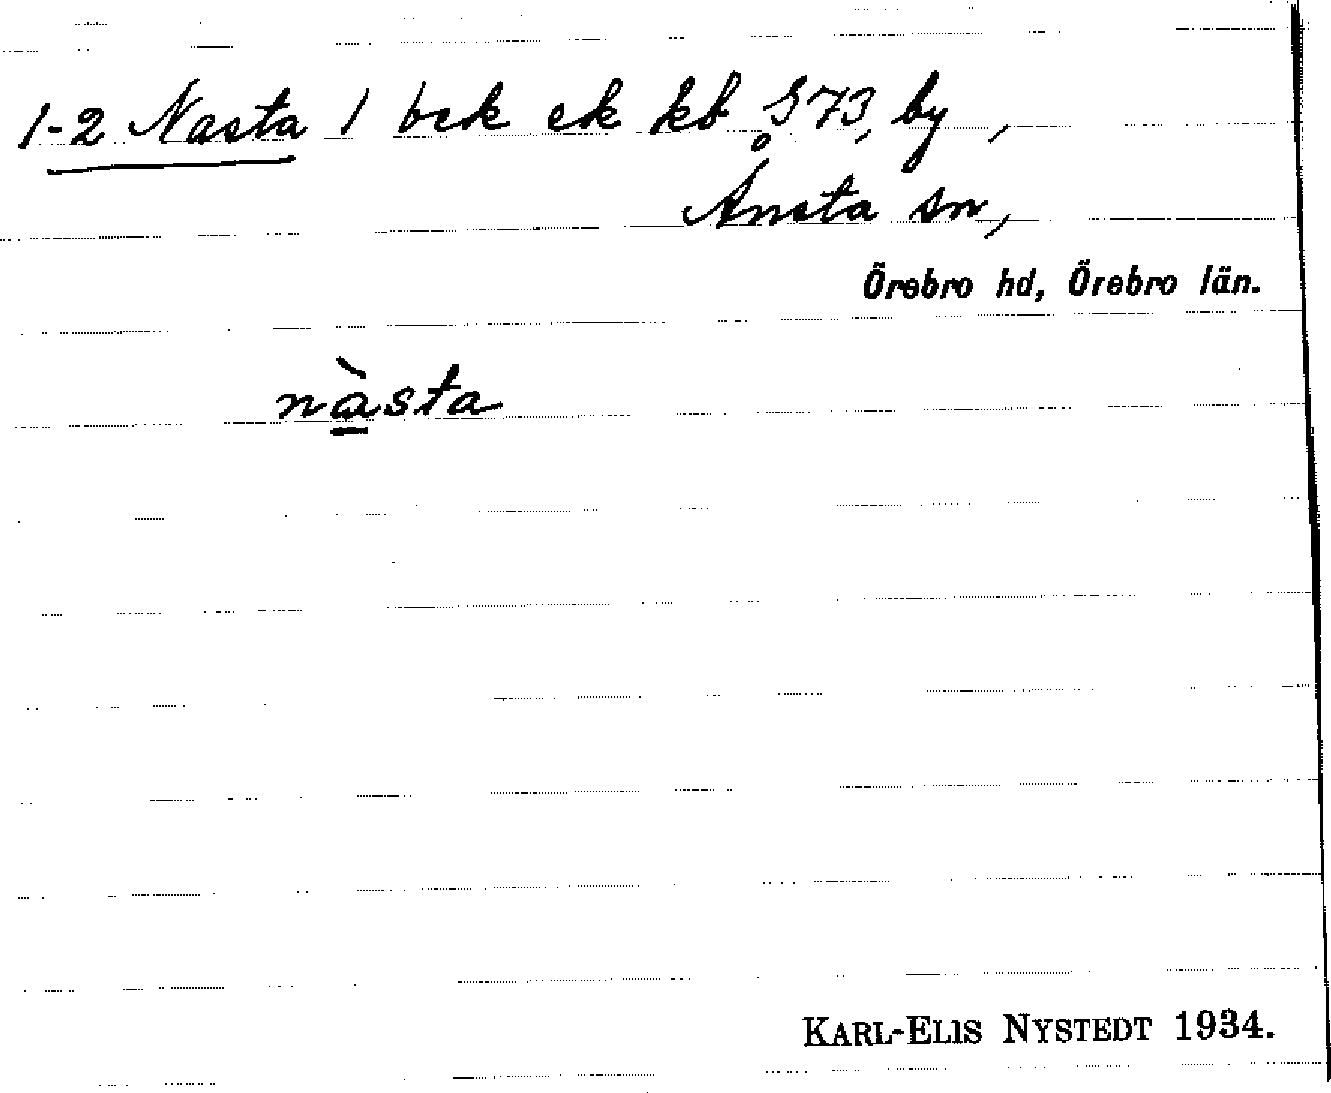 1-2 Nasta / bek ek kb S 73, by,
Ånsta sn,
Örebro hd, Örebro län.
nàsta
KARL-ELIS NYSTEDT 1934.